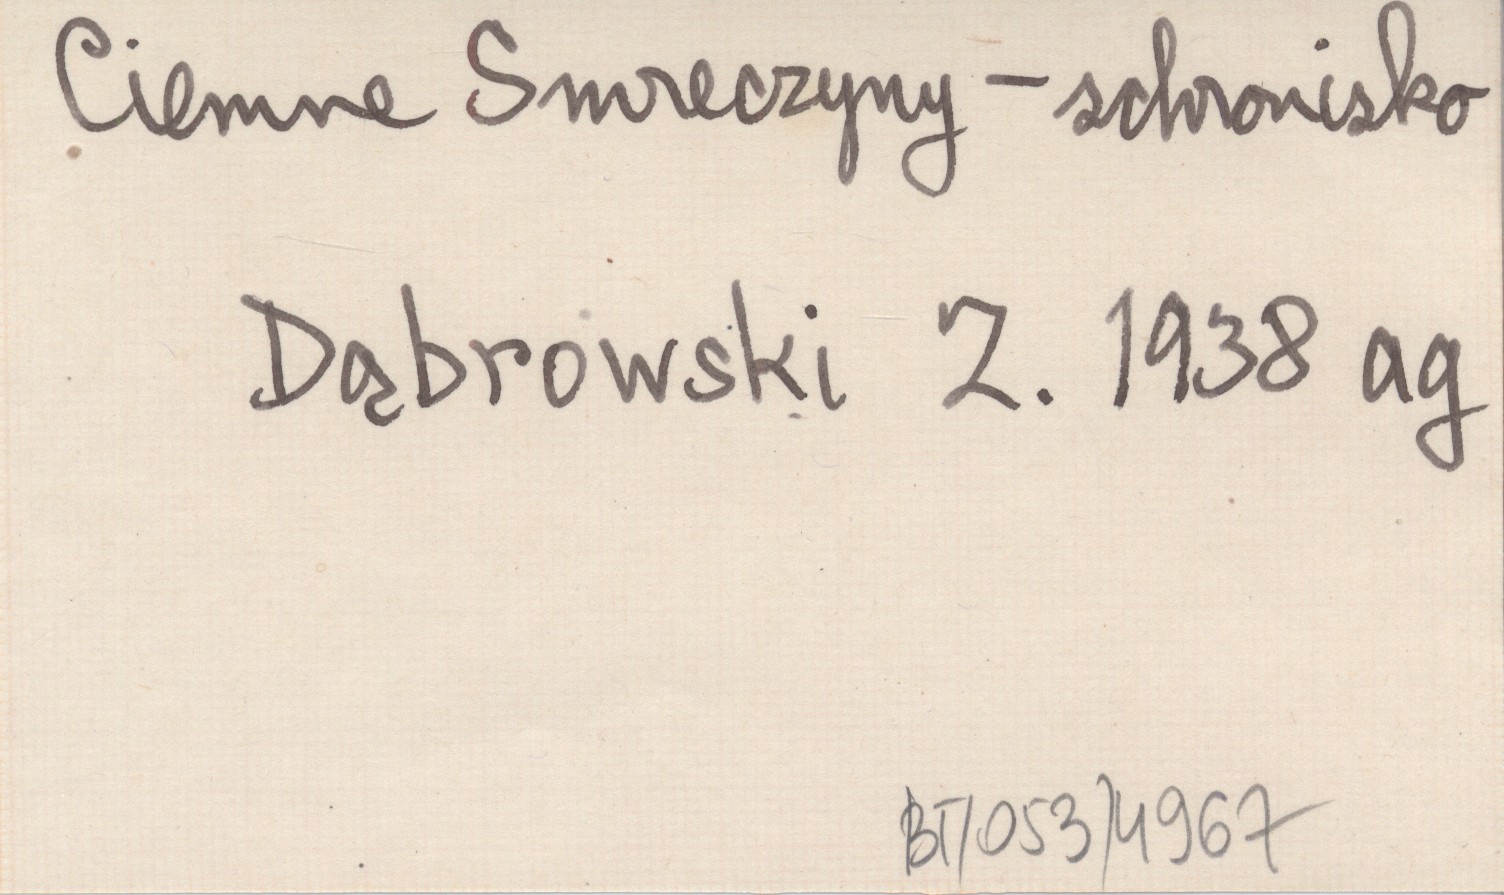 Ciemne Smreczyny - schronisko
Dąbrowski Z. 1938 ag
BT/053/4967